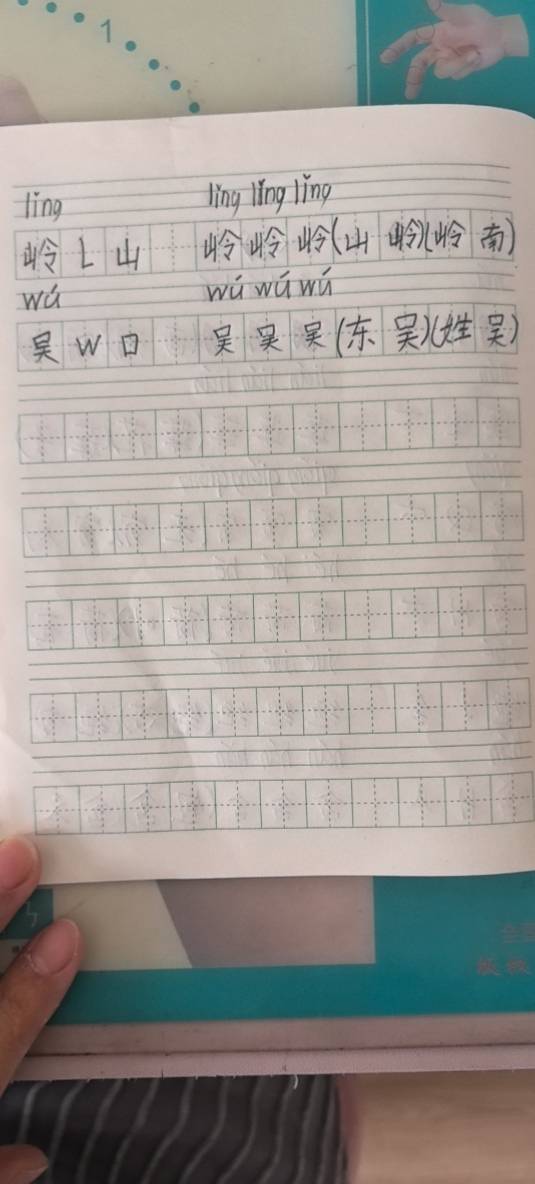 1
lǐng lǐng lǐng lǐng
岭 L 山 岭 岭 岭(山 岭)(岭 南)
wú wú wú wú
吴 W 口 吴 吴 吴(东 吴)(姓 吴)